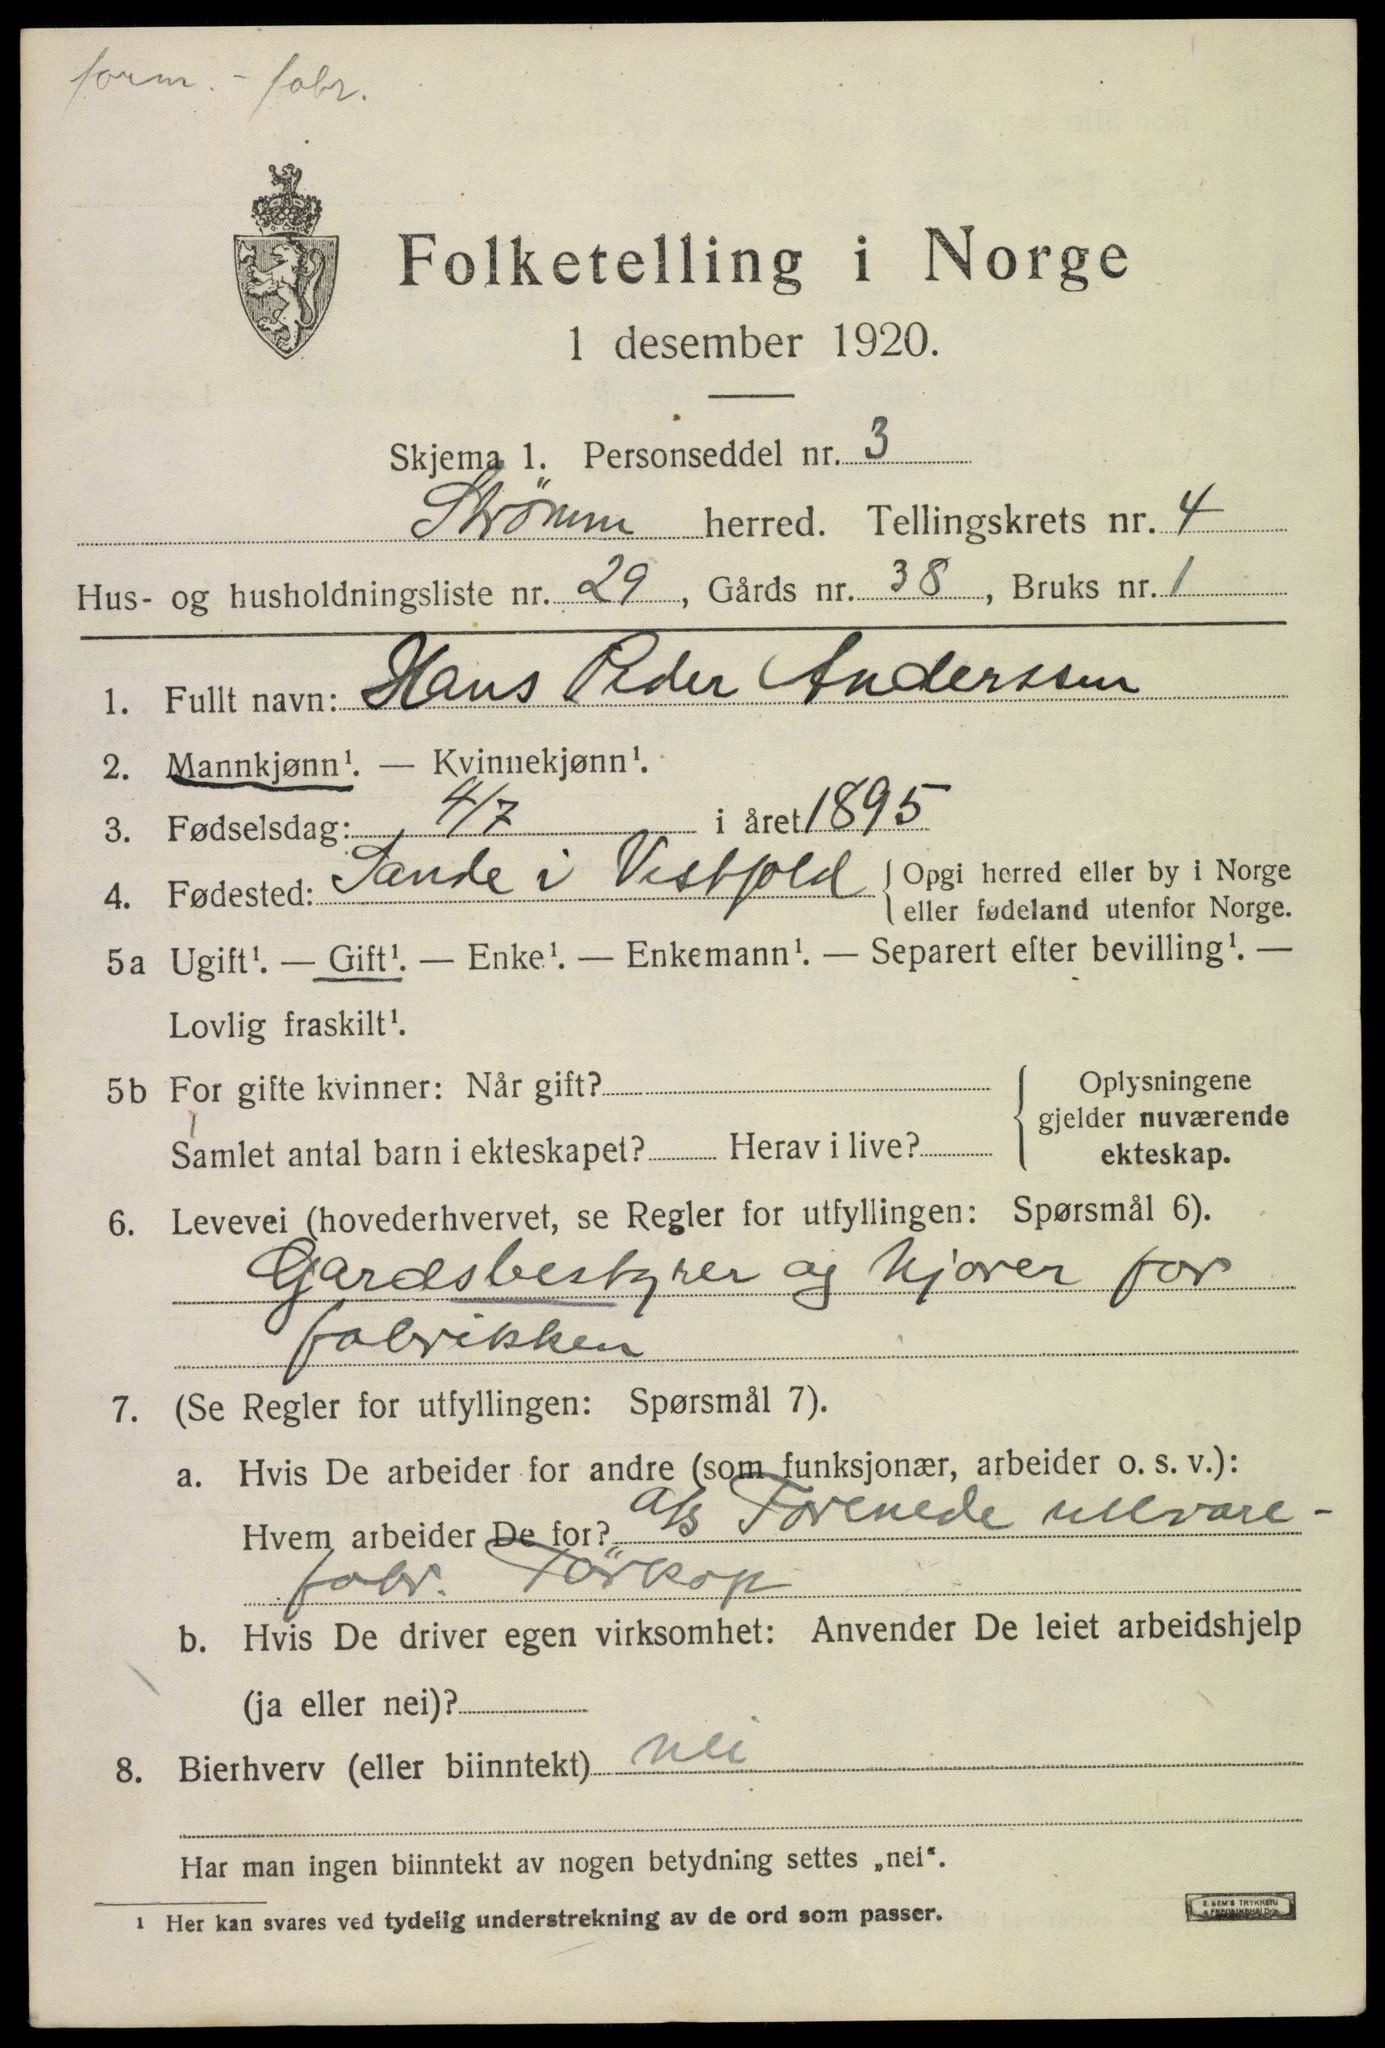 form. - fabr.
Folketelling i Norge
1 desember 1920.
Skjema 1. Personseddel nr. 3
Strømm herred. Tellingskrets nr. 4
Hus- og husholdningsliste nr. 29, Gårds nr. 38, Bruks nr. 1
1. Fullt navn: Hans Peder Anderssen
2. Mannkjønn¹. — Kvinnekjønn¹.
3. Fødselsdag: 4/7 i året 1895
4. Fødested: Sande i Vestfold { Opgi herred eller by i Norge
eller fødeland utenfor Norge.
5a Ugift¹. — Gift¹. — Enke¹. — Enkemann¹. — Separert efter bevilling¹. —
Lovlig fraskilt¹.
5b For gifte kvinner: Når gift? { Oplysningene
gjelder nuværende
Samlet antal barn i ekteskapet? Herav i live? ekteskap.
6. Levevei (hovederhvervet, se Regler for utfyllingen: Spørsmål 6).
Gardsbestyrer og kjører for
fabrikken
7. (Se Regler for utfyllingen: Spørsmål 7).
a. Hvis De arbeider for andre (som funksjonær, arbeider o. s. v.):
Hvem arbeider De for? A/S Forenede ullvare-
fabr. Tørkop
b. Hvis De driver egen virksomhet: Anvender De leiet arbeidshjelp
(ja eller nei)?
8. Bierhverv (eller biinntekt) nei
Har man ingen biinntekt av nogen betydning settes „nei“.
¹ Her kan svares ved tydelig understrekning av de ord som passer.
E. SEM'S TRYKKERI